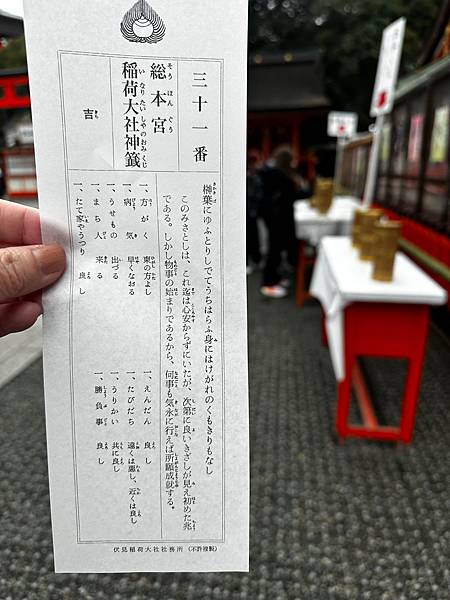 三十一番
総本宮
そうほんぐう
稲荷大社神籤
いなりたいしやのおみくじ
吉
きち
榊葉にゆふとりしでてうちはらふ身にはけがれのくもきりもなし
このみさとしは、これ迄は心安からずにいたが、次第に良いきざしが見え初めた兆
である。しかし物事の始まりであるから、何事も気永に行えば所願成就する。
一、方がく 東の方よし
一、病気 早くなおる
一、うせもの 出づる
一、まち人 来る
一、たて家やうつり 良し
一、えんだん 良し
一、たびだち 遠くは悪し、近くは良し
一、うりかい 共に良し
一、勝負事 良し
伏見稲荷大社社務所 (不許複製)